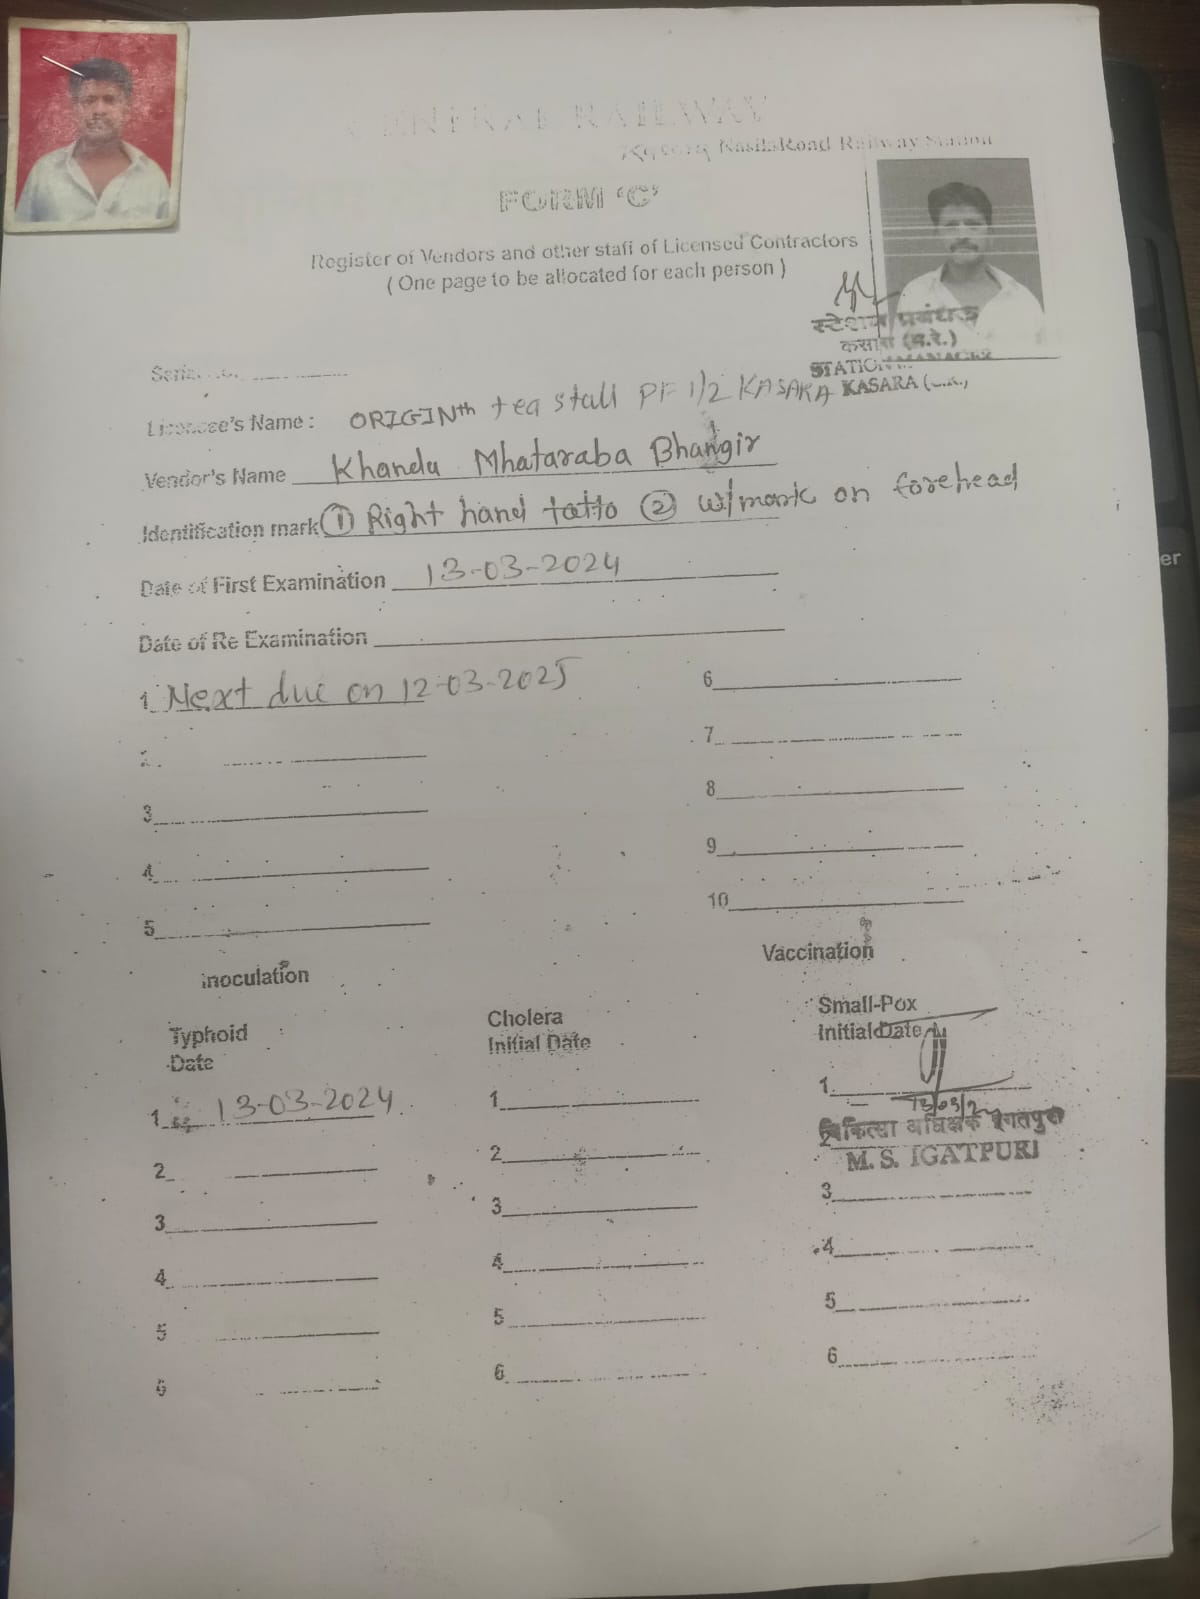 CENTRAL RAILWAY
Kasara NasikRoad Railway Station
FORM 'C'
Register of Vendors and other staff of Licensed Contractors
( One page to be allocated for each person )
स्टेशन प्रबंधक
कसारा (म.रे.)
STATION MANAGER
KASARA (C.R.)
Serial No.
Licencee's Name : ORIGINth tea stall PF 1/2 KASARA
Vendor's Name Khandu Mhataraba Bhangir
Identification mark ① Right hand tatto ② w/mark on forehead
Date of First Examination 13-03-2024
Date of Re Examination
1 Next due on 12-03-2025 6
2 7
3 8
4 9
5 10
Inoculation Vaccination
Typhoid Cholera Small-Pox
Date Initial Date Initial Date
1 13-03-2024 1 1
13/03/24
चिकित्सा अधिक्षक इगतपुरी
2 2 2
M. S. IGATPURI
3 3 3
4 4 4
5 5 5
6 6 6
er